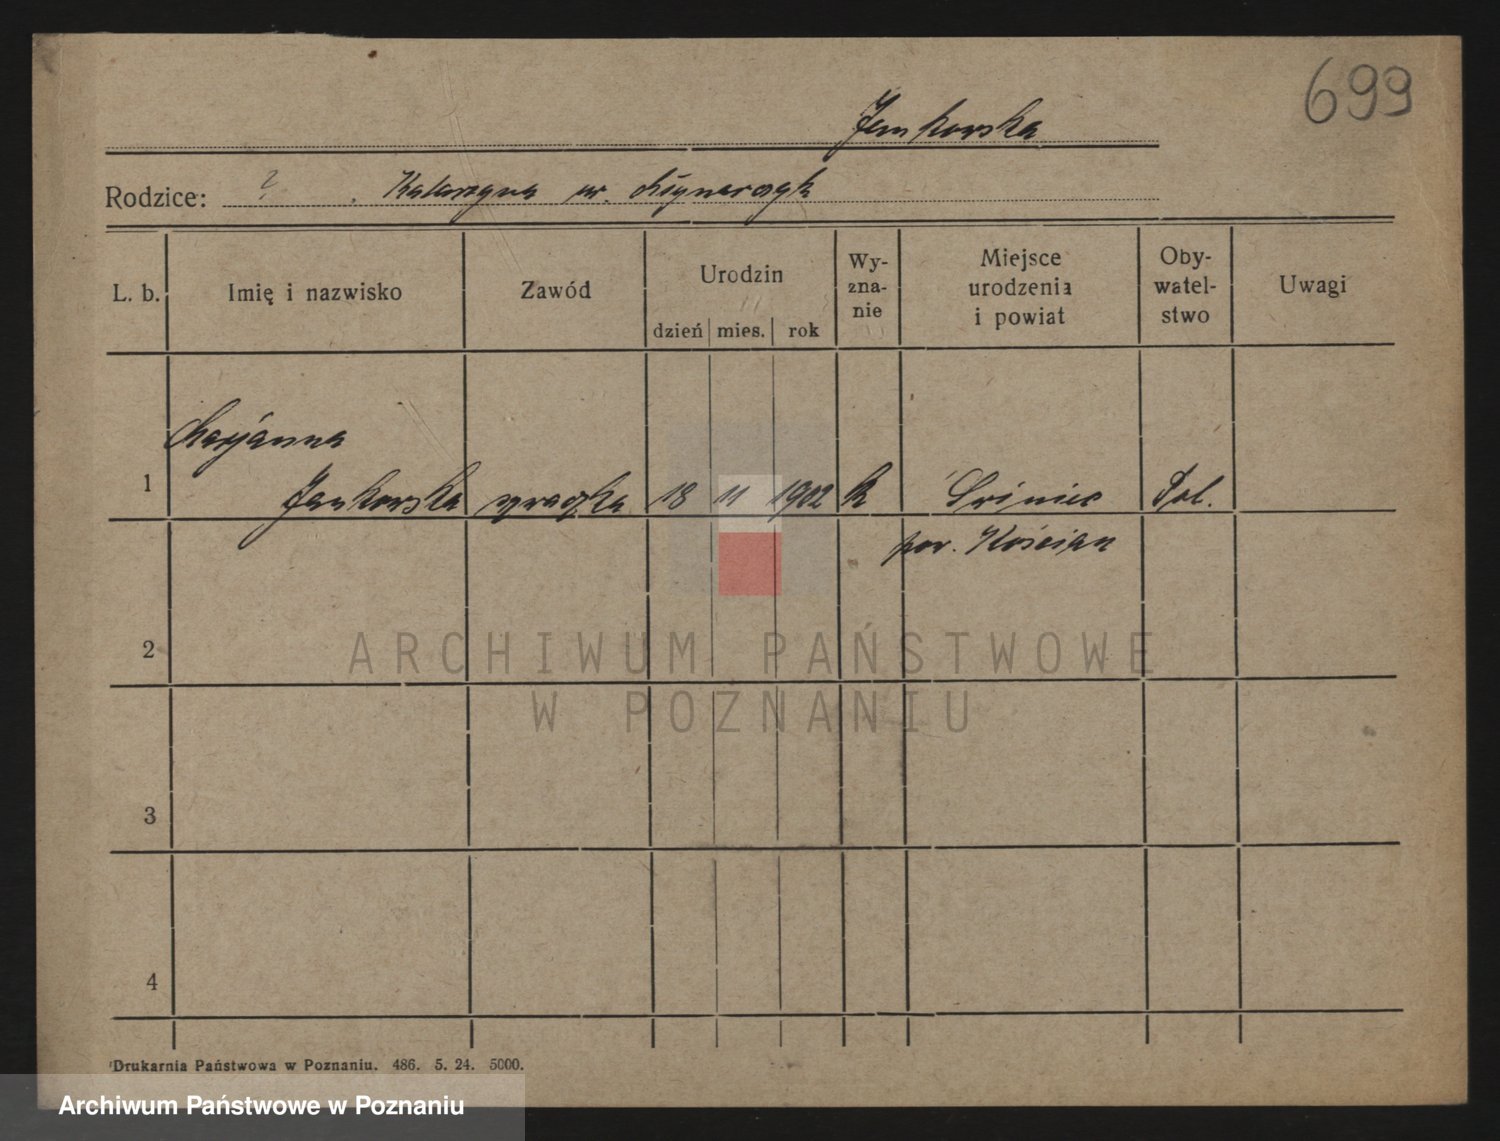 699
Jankowska
Rodzice: ? Katarzyna ur. Młynarczyk
L. b.
Imię i nazwisko
Zawód
Urodzin
dzień mies. rok
Wy-
zna-
nie
Miejsce
urodzenia
i powiat
Oby-
watel-
stwo
Uwagi
Marjanna
1 Jankowska 18 11 1902 k Pol.
pow. Kościan
2
3
4
ARCHIWUM PAŃSTWOWE
W POZNANIU
Drukarnia Państwowa w Poznaniu. 486. 5. 24. 5000.
Archiwum Państwowe w Poznaniu